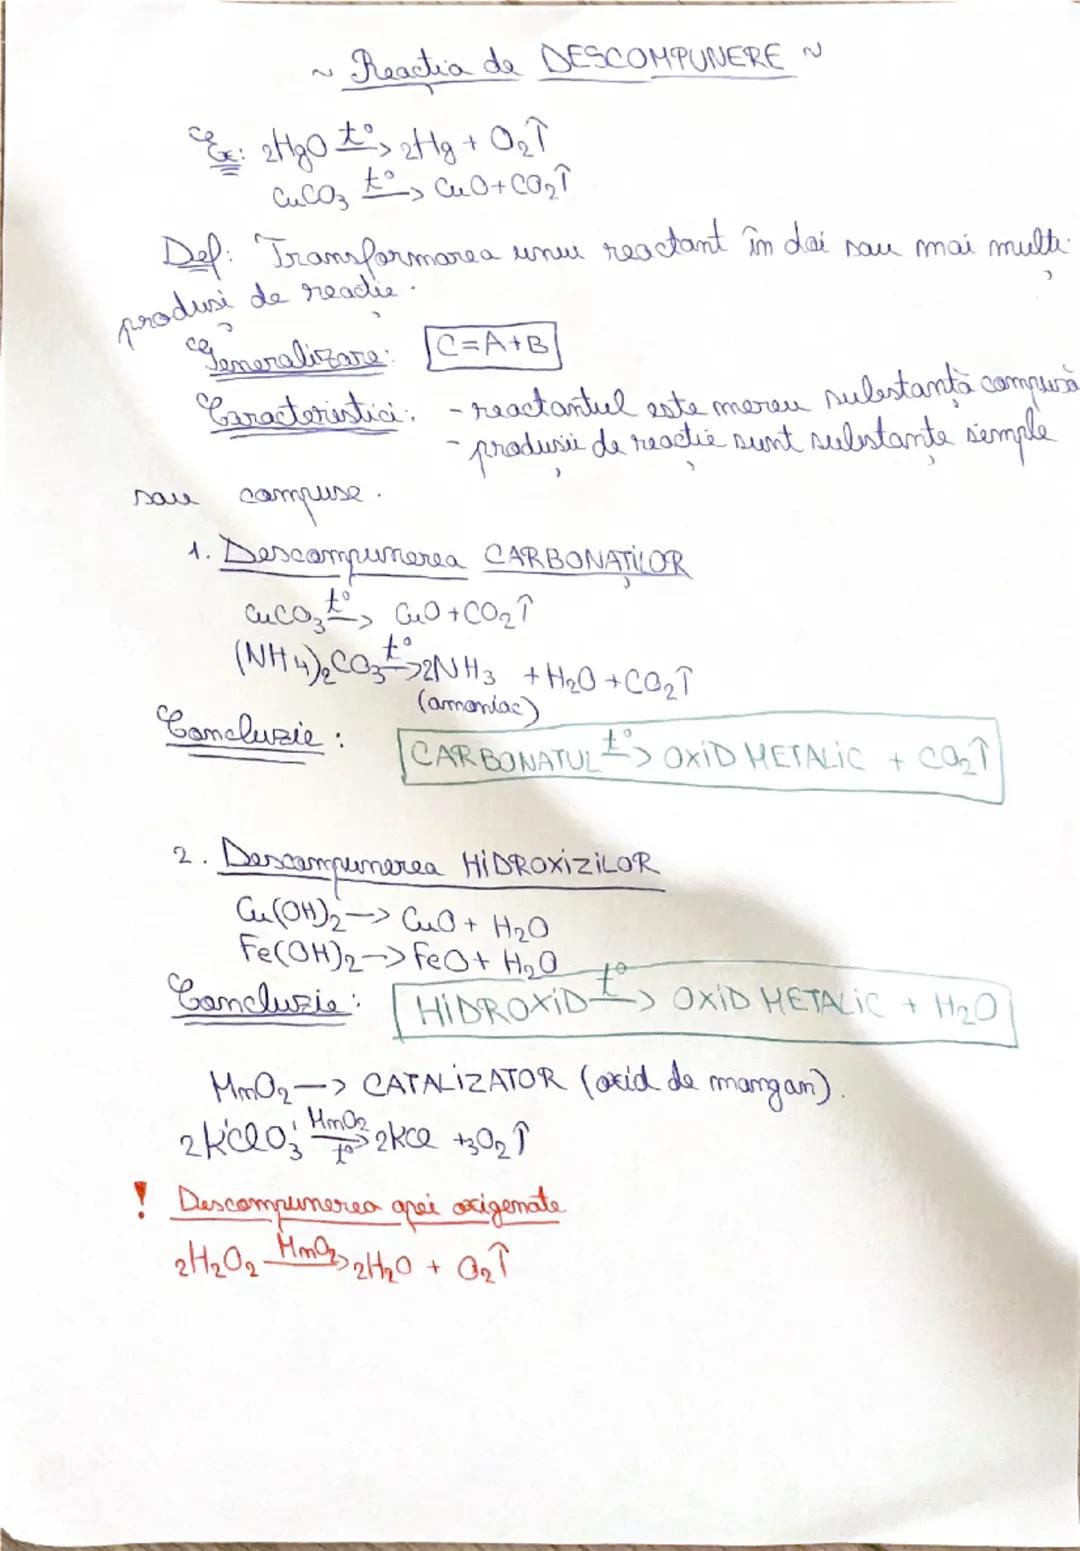 ~ Reactia de DESCOMPUNERE ~
Ex: 2HgO t°→ 2Hg + O₂↑
CuCO₃ t°→ CuO+CO₂↑
Def: Transformarea unui reactant în doi sau mai multi
produși de reacție.
Generalizare: C=A+B
Caracteristici: - reactantul este mereu substanță compusă
- produsii de reacție sunt substanțe simple
sau compuse.
1. Descompunerea CARBONAȚILOR
CuCO₃ t°→ CuO+CO₂↑
(NH₄)₂CO₃ t°→ 2NH₃ + H₂O + CO₂↑
(amoniac)
Concluzie: CARBONATUL t°→ OXiD METALiC + CO₂↑
2. Descompunerea HiDROXiZiLOR
Cu(OH)₂ → CuO + H₂O
Fe(OH)₂ → FeO + H₂O
Concluzie: HiDROXiD t°→ OXiD METALiC + H₂O
MnO₂ → CATALiZATOR (oxid de mangan).
2KClO₃ MnO₂ t°→ 2KCl + 3O₂↑
! Descompunerea apei oxigenate
2H₂O₂ MnO₂→ 2H₂O + O₂↑